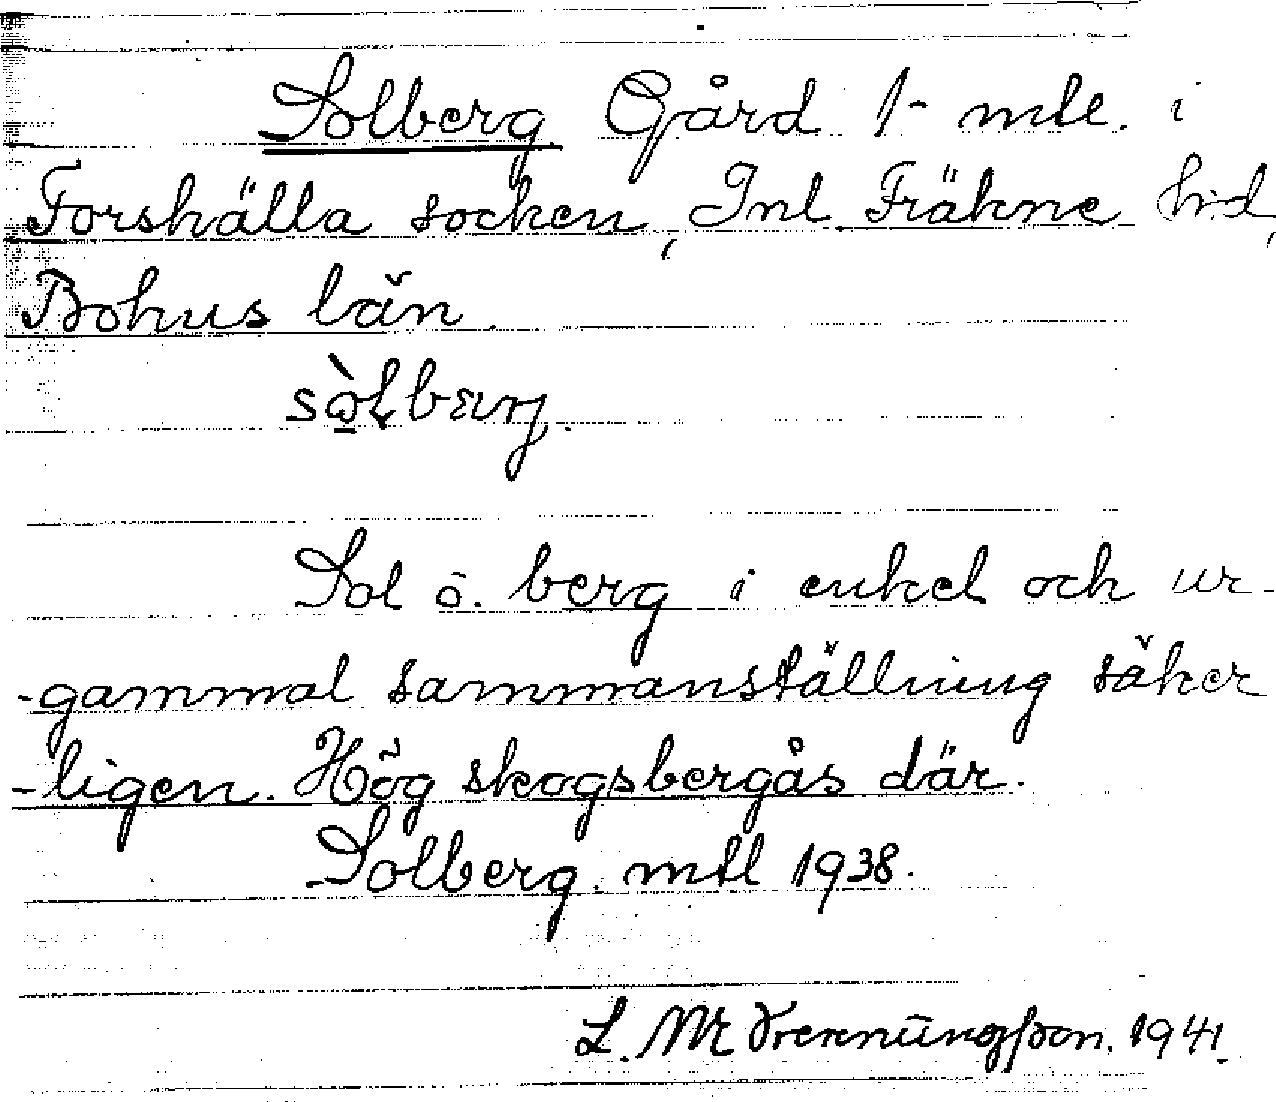 Solberg Gård 1- mtl. i
Forshälla socken, Inl. Fräkne hrd,
Bohus län
sòlbærj.
Sol o. berg i enkel och ur-
-gammal sammanställning säker
-ligen. Hög skogsbergås där.
Solberg. mtl 1938.
L. M. 1941.